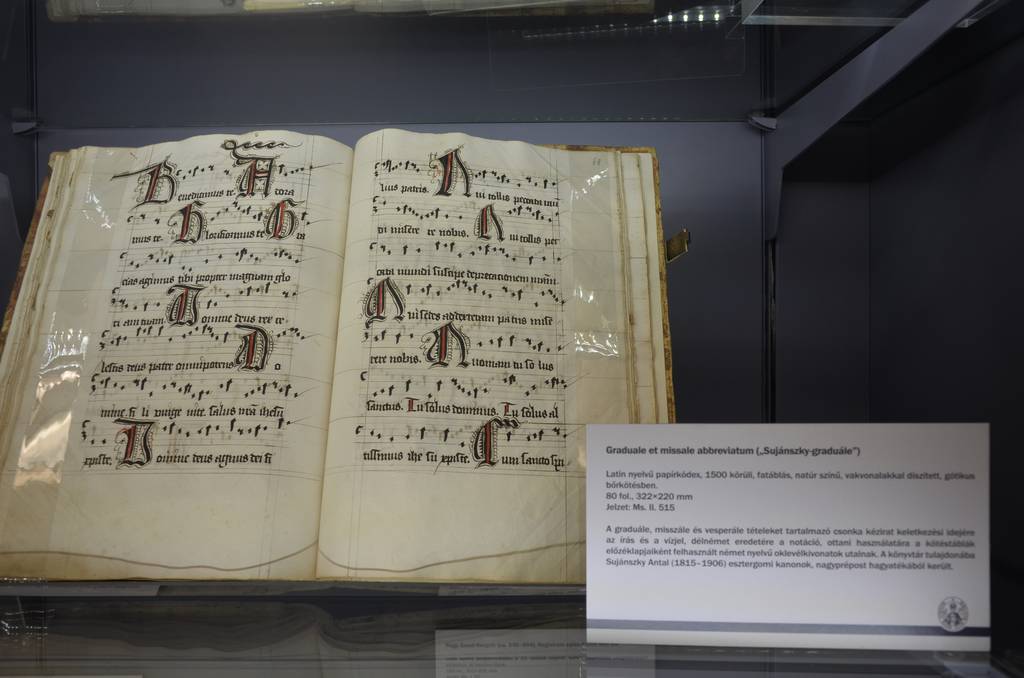 Benedicimus te. Adora
mus te. Glorificamus te Gra
cias agimus tibi propter magnam glo
riam tuam Domine deus rex ce
lestis deus pater omnipotens Do
mine fi li vnige nite. salus nra ihesu
xpiste. Domine deus agnus dei fi
lius patris. Qui tollis peccata mu
di misere re nobis. Qui tollis pec
cata mundi suscipe deprecationem nram
Qui sedes ad dexteram patris mise
rere nobis. Quoniam tu so lus
sanctus. Tu solus dominus. Tu solus al
tissimus ihe su xpiste. Cum sancto spi
Graduale et missale abbreviatum („Sujánszky-graduále”)
Latin nyelvű papírkódex, 1500 körüli, fatáblás, natúr színű, vakvonalakkal díszített, gótikus
bőrkötésben.
80 fol., 322×220 mm
Jelzet: Ms. II. 515
A graduále, misszále és vesperále tételeket tartalmazó csonka kézirat keletkezési idejére
az írás és a vízjel, délnémet eredetére a notáció, ottani használatára a kötéstáblák
előzéklapjaiként felhasznált német nyelvű oklevélkivonatok utalnak. A könyvtár tulajdonába
Sujánszky Antal (1815–1906) esztergomi kanonok, nagyprépost hagyatékából került.